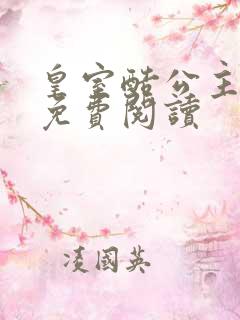 皇室酷公主
免費閱讀
凌國英